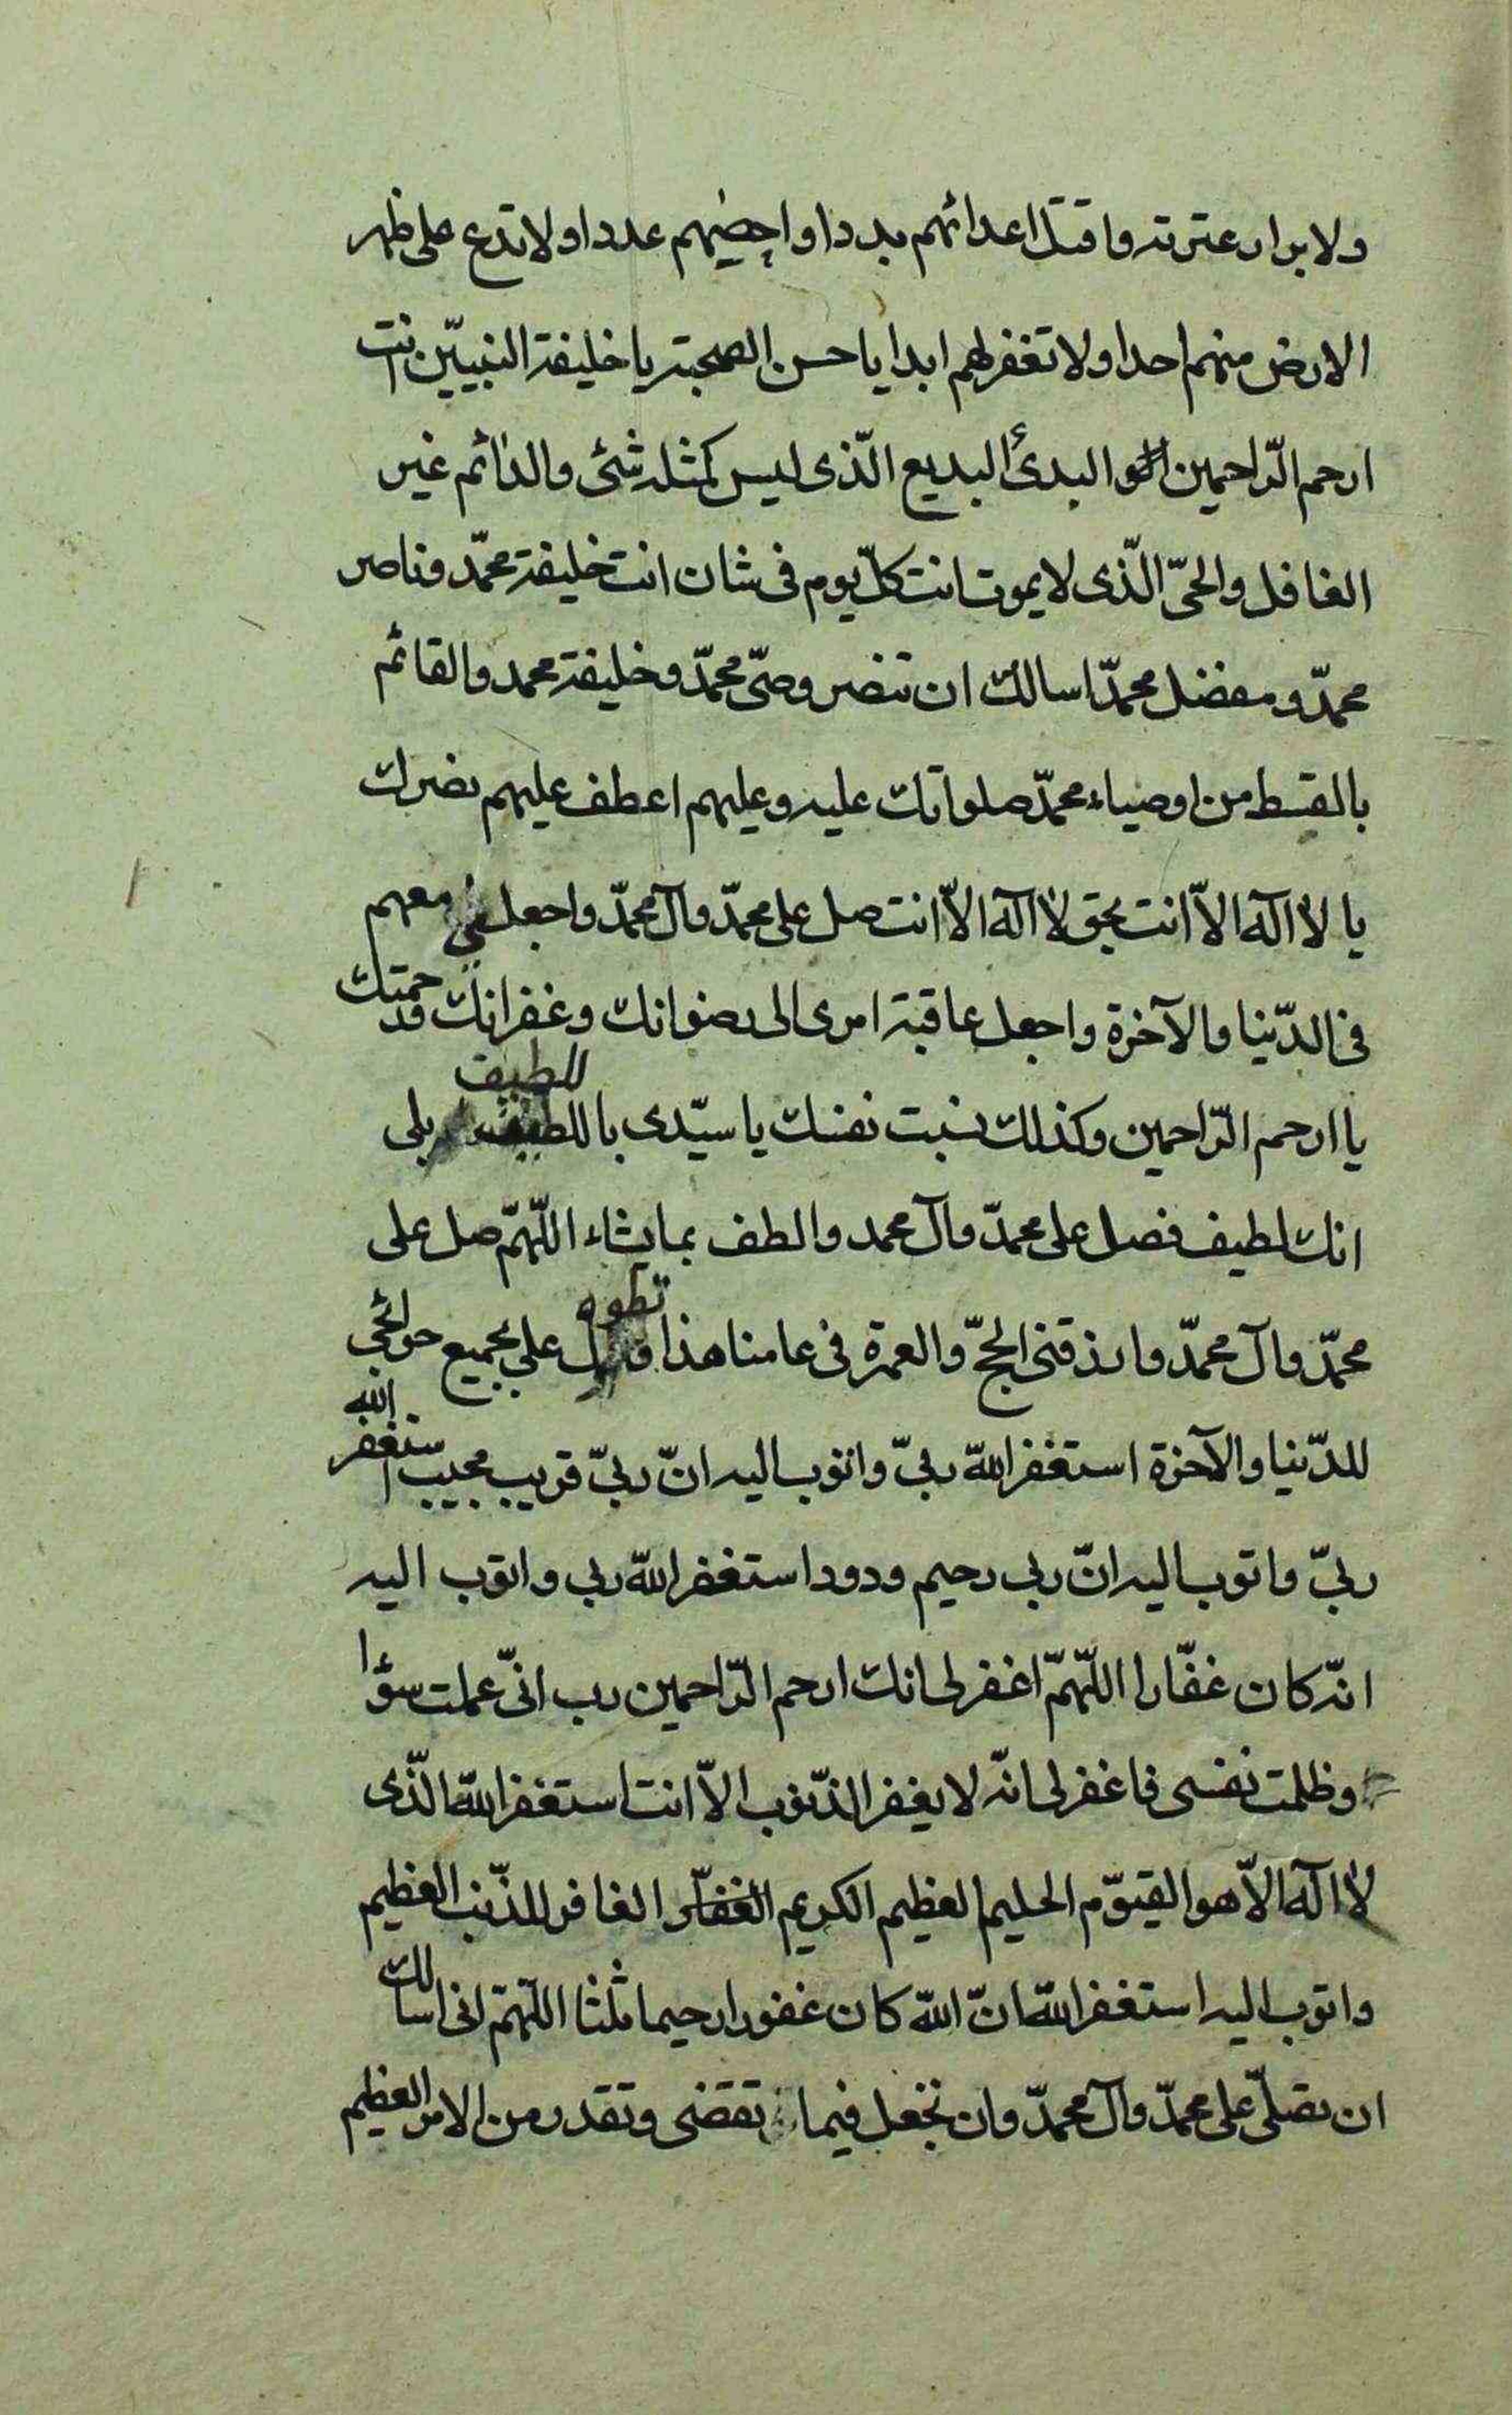 ولابرار عترته واقتل اعدائهم بددا واحصهم عددا ولا تدع على ظهر
الارض منهم احدا ولا تغفر لهم ابدا يا حسن الصحبة يا خليفة النبيّين انت
ارحم الرّاحمين البدئ البديع الّذى ليس كمثله شئى والدائم غير
الغافل والحىّ الّذى لا يموت انت كلّ يوم فى شان انت خليفة محمّد وناصر
محمّد ومفضل محمّد اسالك ان تنصر وصىّ محمّد وخليفة محمد والقائم
بالقسط من اوصياء محمّد صلواتك عليه وعليهم اعطف عليهم نصرك
يا لا اله الاّ انت بحق لا اله الاّ انت صل على محمّد وآل محمّد واجعلنى معهم
فى الدّنيا والآخرة واجعل عاقبة امرى الى رضوانك وغفرانك ورحمتك
يا ارحم الرّاحمين وكذلك نسبت نفسك يا سيّدى باللطيف للطيف بلى
انك لطيف فصل على محمّد وآل محمد والطف بما يشاء اللّهمّ صل على
محمّد وآل محمّد وارزقنى الحجّ والعمرة فى عامنا هذا وتطول على بجميع حوائجى
للدّنيا والآخرة استغفر اللّه ربىّ واتوب اليه انّ ربىّ قريب مجيب استغفر اللّه
ربىّ واتوب اليه انّ ربى رحيم ودود استغفر اللّه ربى واتوب اليه
انّه كان غفّارا اللّهمّ اغفر لى انك ارحم الرّاحمين رب انىّ عملت سؤا
وظلمت نفسى فاغفر لى انّه لا يغفر الذّنوب الاّ انت استغفر اللّه الّذى
لا اله الاّ هو القيوّم الحليم العظيم الكريم الغفّار الغافر للذّنب العظيم
واتوب اليه استغفر اللّه انّ اللّه كان غفورا رحيما ثلثا اللّهمّ انى اسالك
ان تصلّى على محمّد وآل محمّد وان تجعل فيما تقضى وتقدر من الامر العظيم